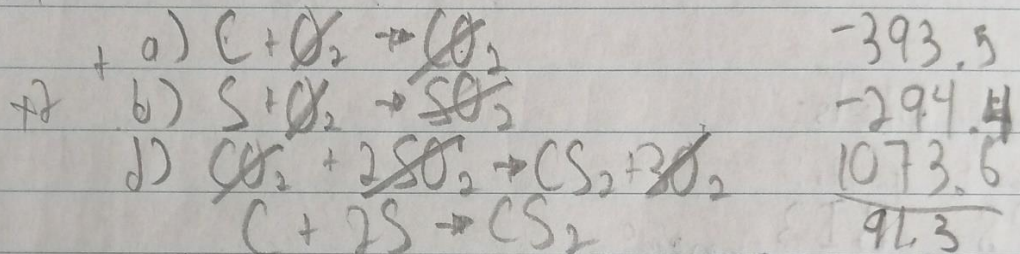 + a) C + O₂ → CO₂ -393.5
×2 b) S + O₂ → SO₂ -294.4
d) CO₂ + 2SO₂ → CS₂ + 3O₂ 1073.6
C + 2S → CS₂ 91.3